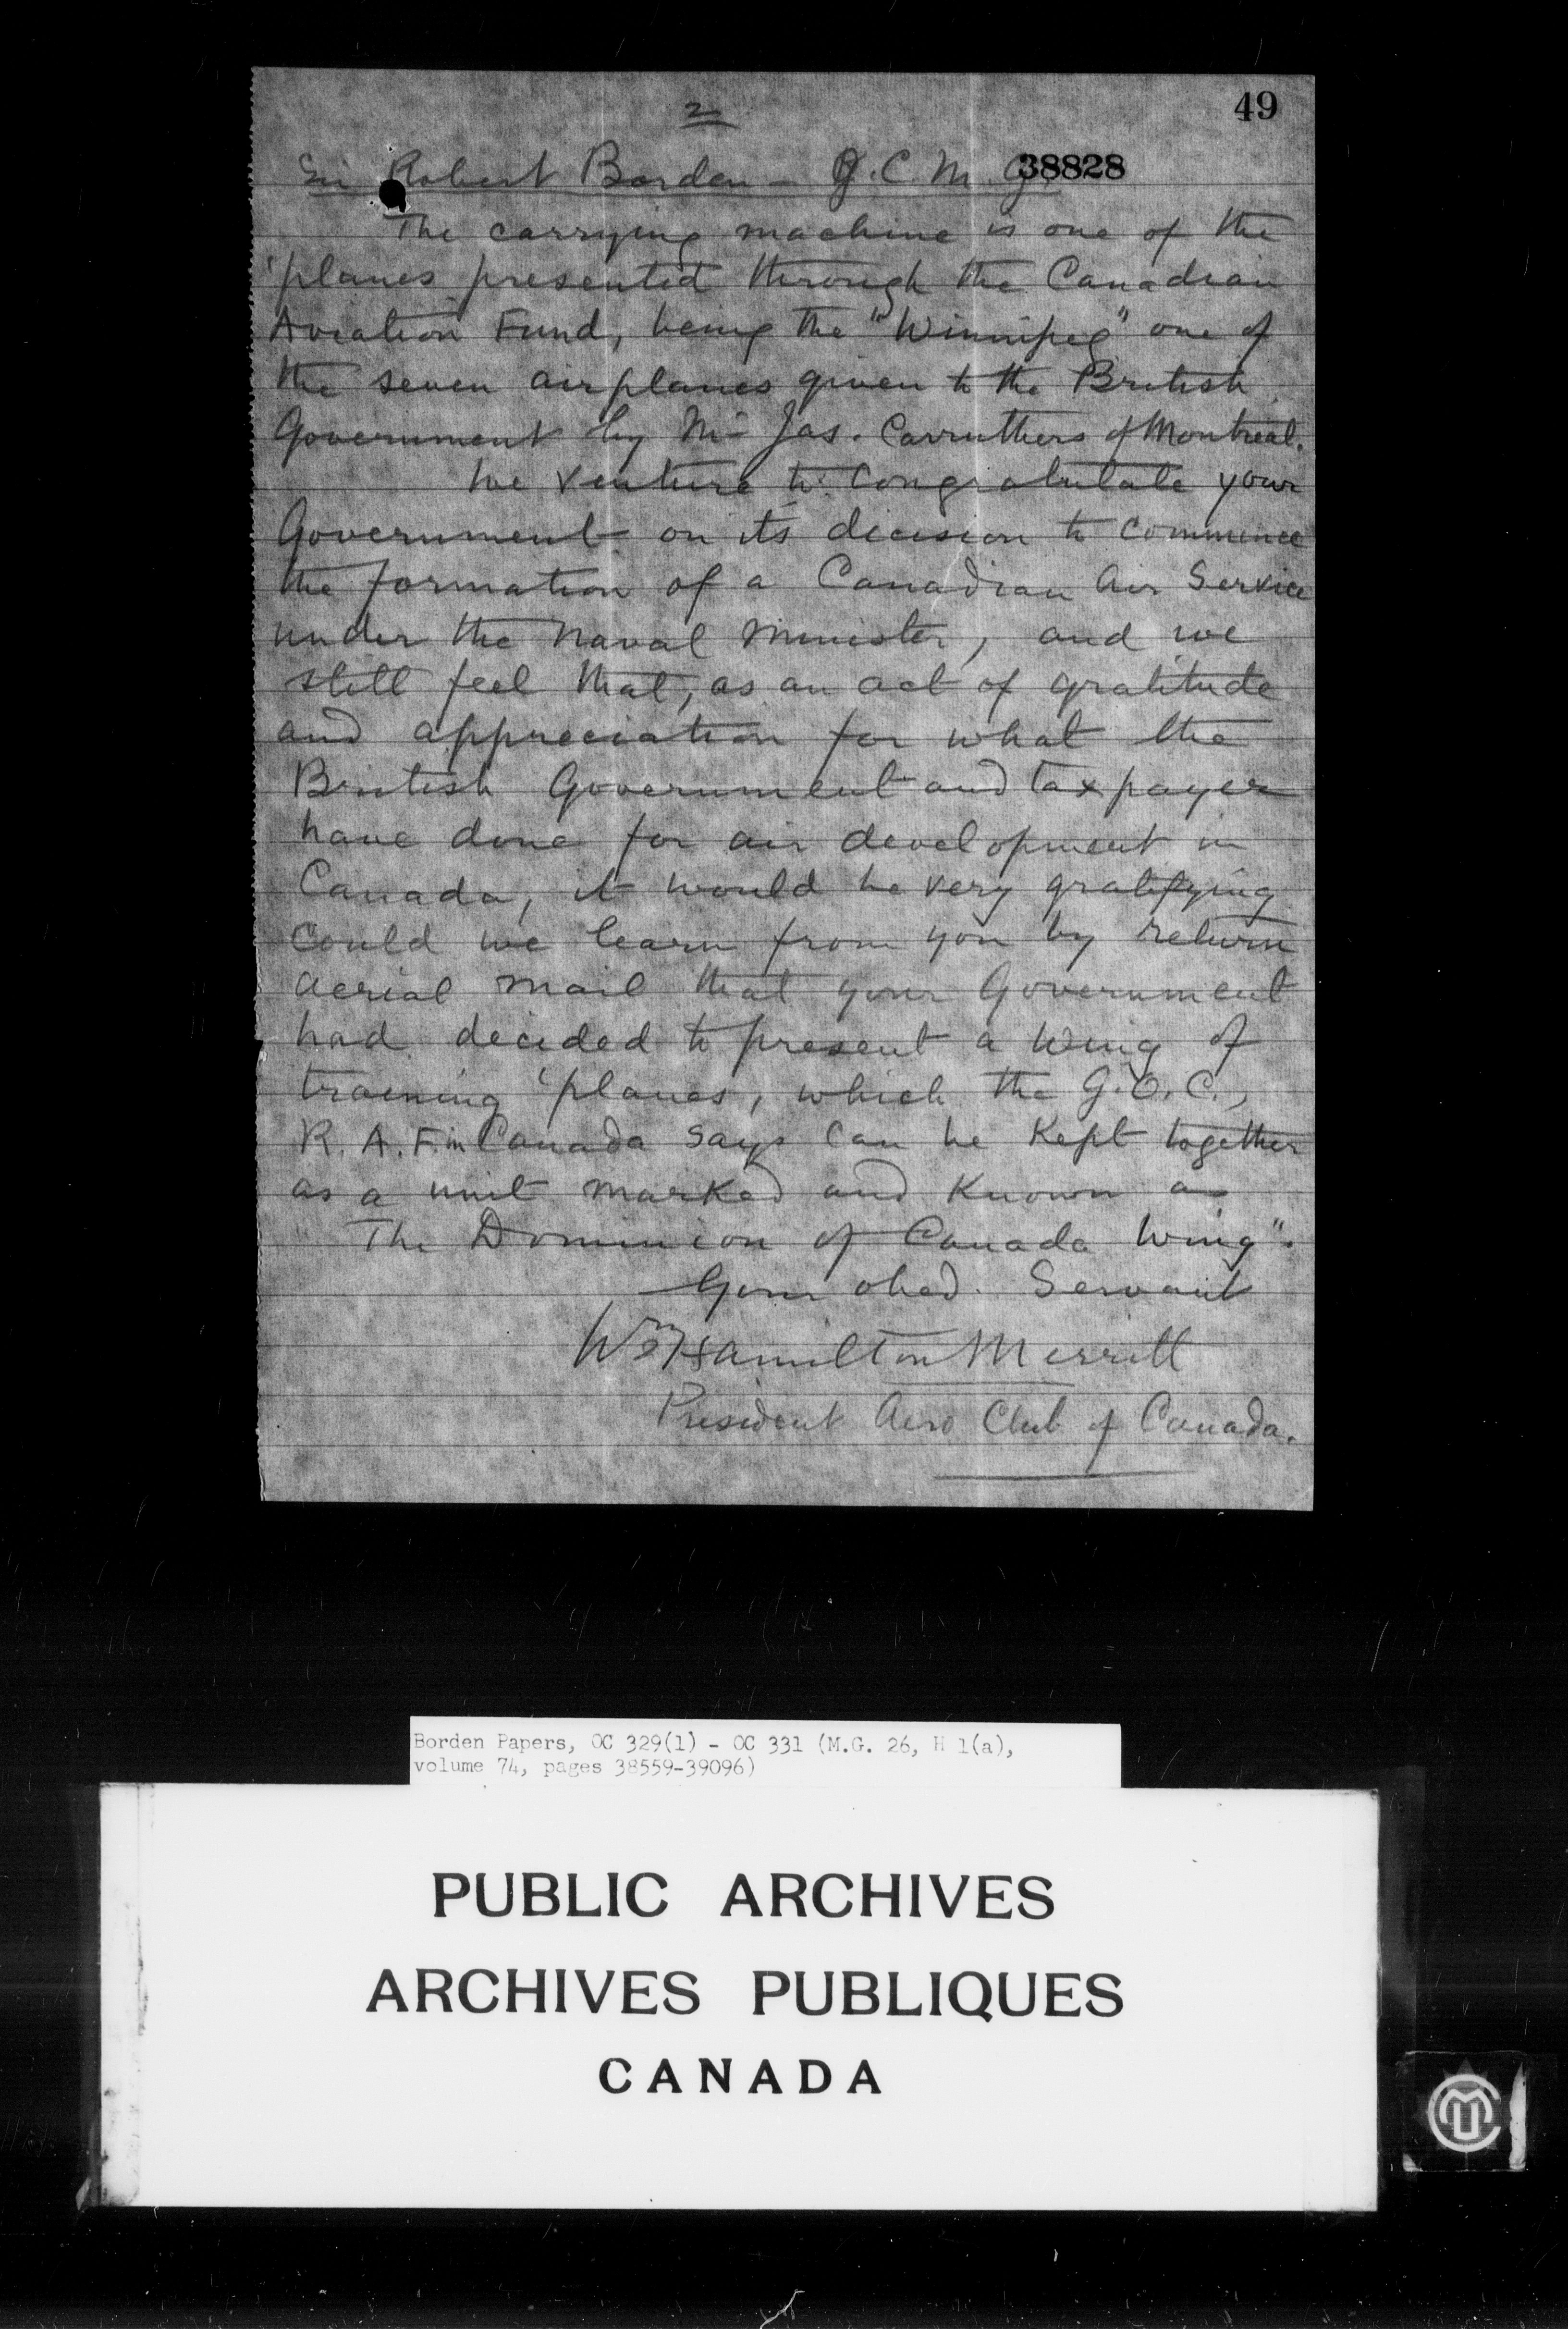 2
49
Sir Robert Borden - G.C.M.G.
38828
The carrying machine is one of the
'planes presented through the Canadian
Aviation Fund, being the "Winnipeg" one of
the seven airplanes given to the British
Government by Mr Jas. Carruthers of Montreal.
We venture to congratulate your
Government on its decision to commence
the formation of a Canadian Air Service
under the Naval Minister, and we
still feel that, as an act of gratitude
and appreciation for what the
British Government and taxpayer
have done for air development in
Canada, it would be very gratifying
could we learn from you by return
aerial mail that your Government
had decided to present a Wing of
training 'planes, which the G.O.C.,
R.A.F. in Canada says can be kept together
as a unit marked and known as
"The Dominion of Canada Wing".
Your obed. Servant
Wm Hamilton Merritt
President Aero Club of Canada.
Borden Papers, OC 329(1) - OC 331 (M.G. 26, H 1(a),
volume 74, pages 38559-39096)
PUBLIC ARCHIVES
ARCHIVES PUBLIQUES
CANADA